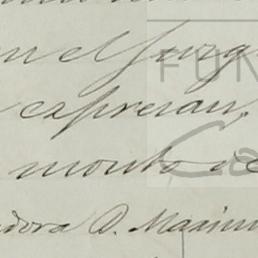 en el Juzg
expresan,
monto de
adora D. Maxim
FUN
Ca